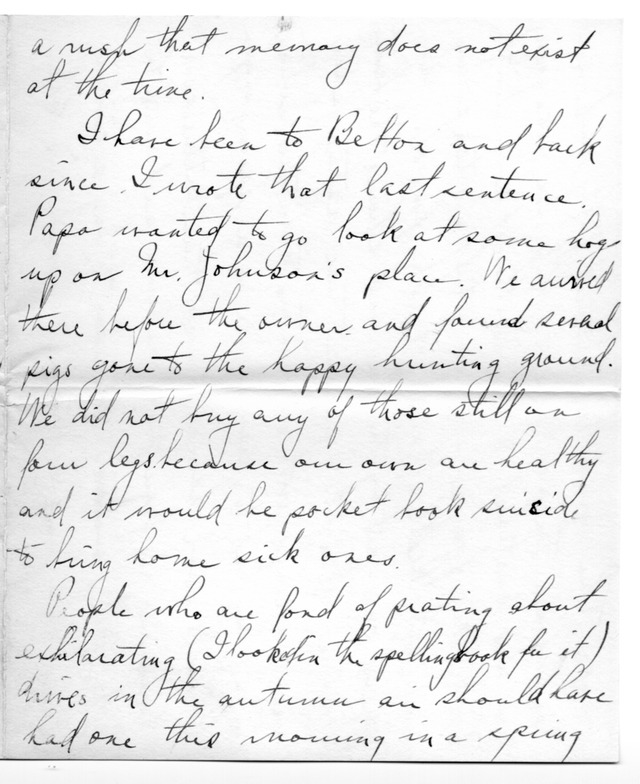 a rush that memory does not exist
at the time.
I have been to Belton and back
since I wrote that last sentence.
Papa wanted to go look at some hogs
up on Mr. Johnson's place. We arrived
there before the owner and found several
pigs gone to the happy hunting ground.
We did not buy any of those still on
four legs because our own are healthy
and it would be pocket book suicide
to bring home sick ones.
People who are fond of prating about
exhilarating (I looked in the spelling book for it)
drives in the autumn air should have
had one this morning in a spring